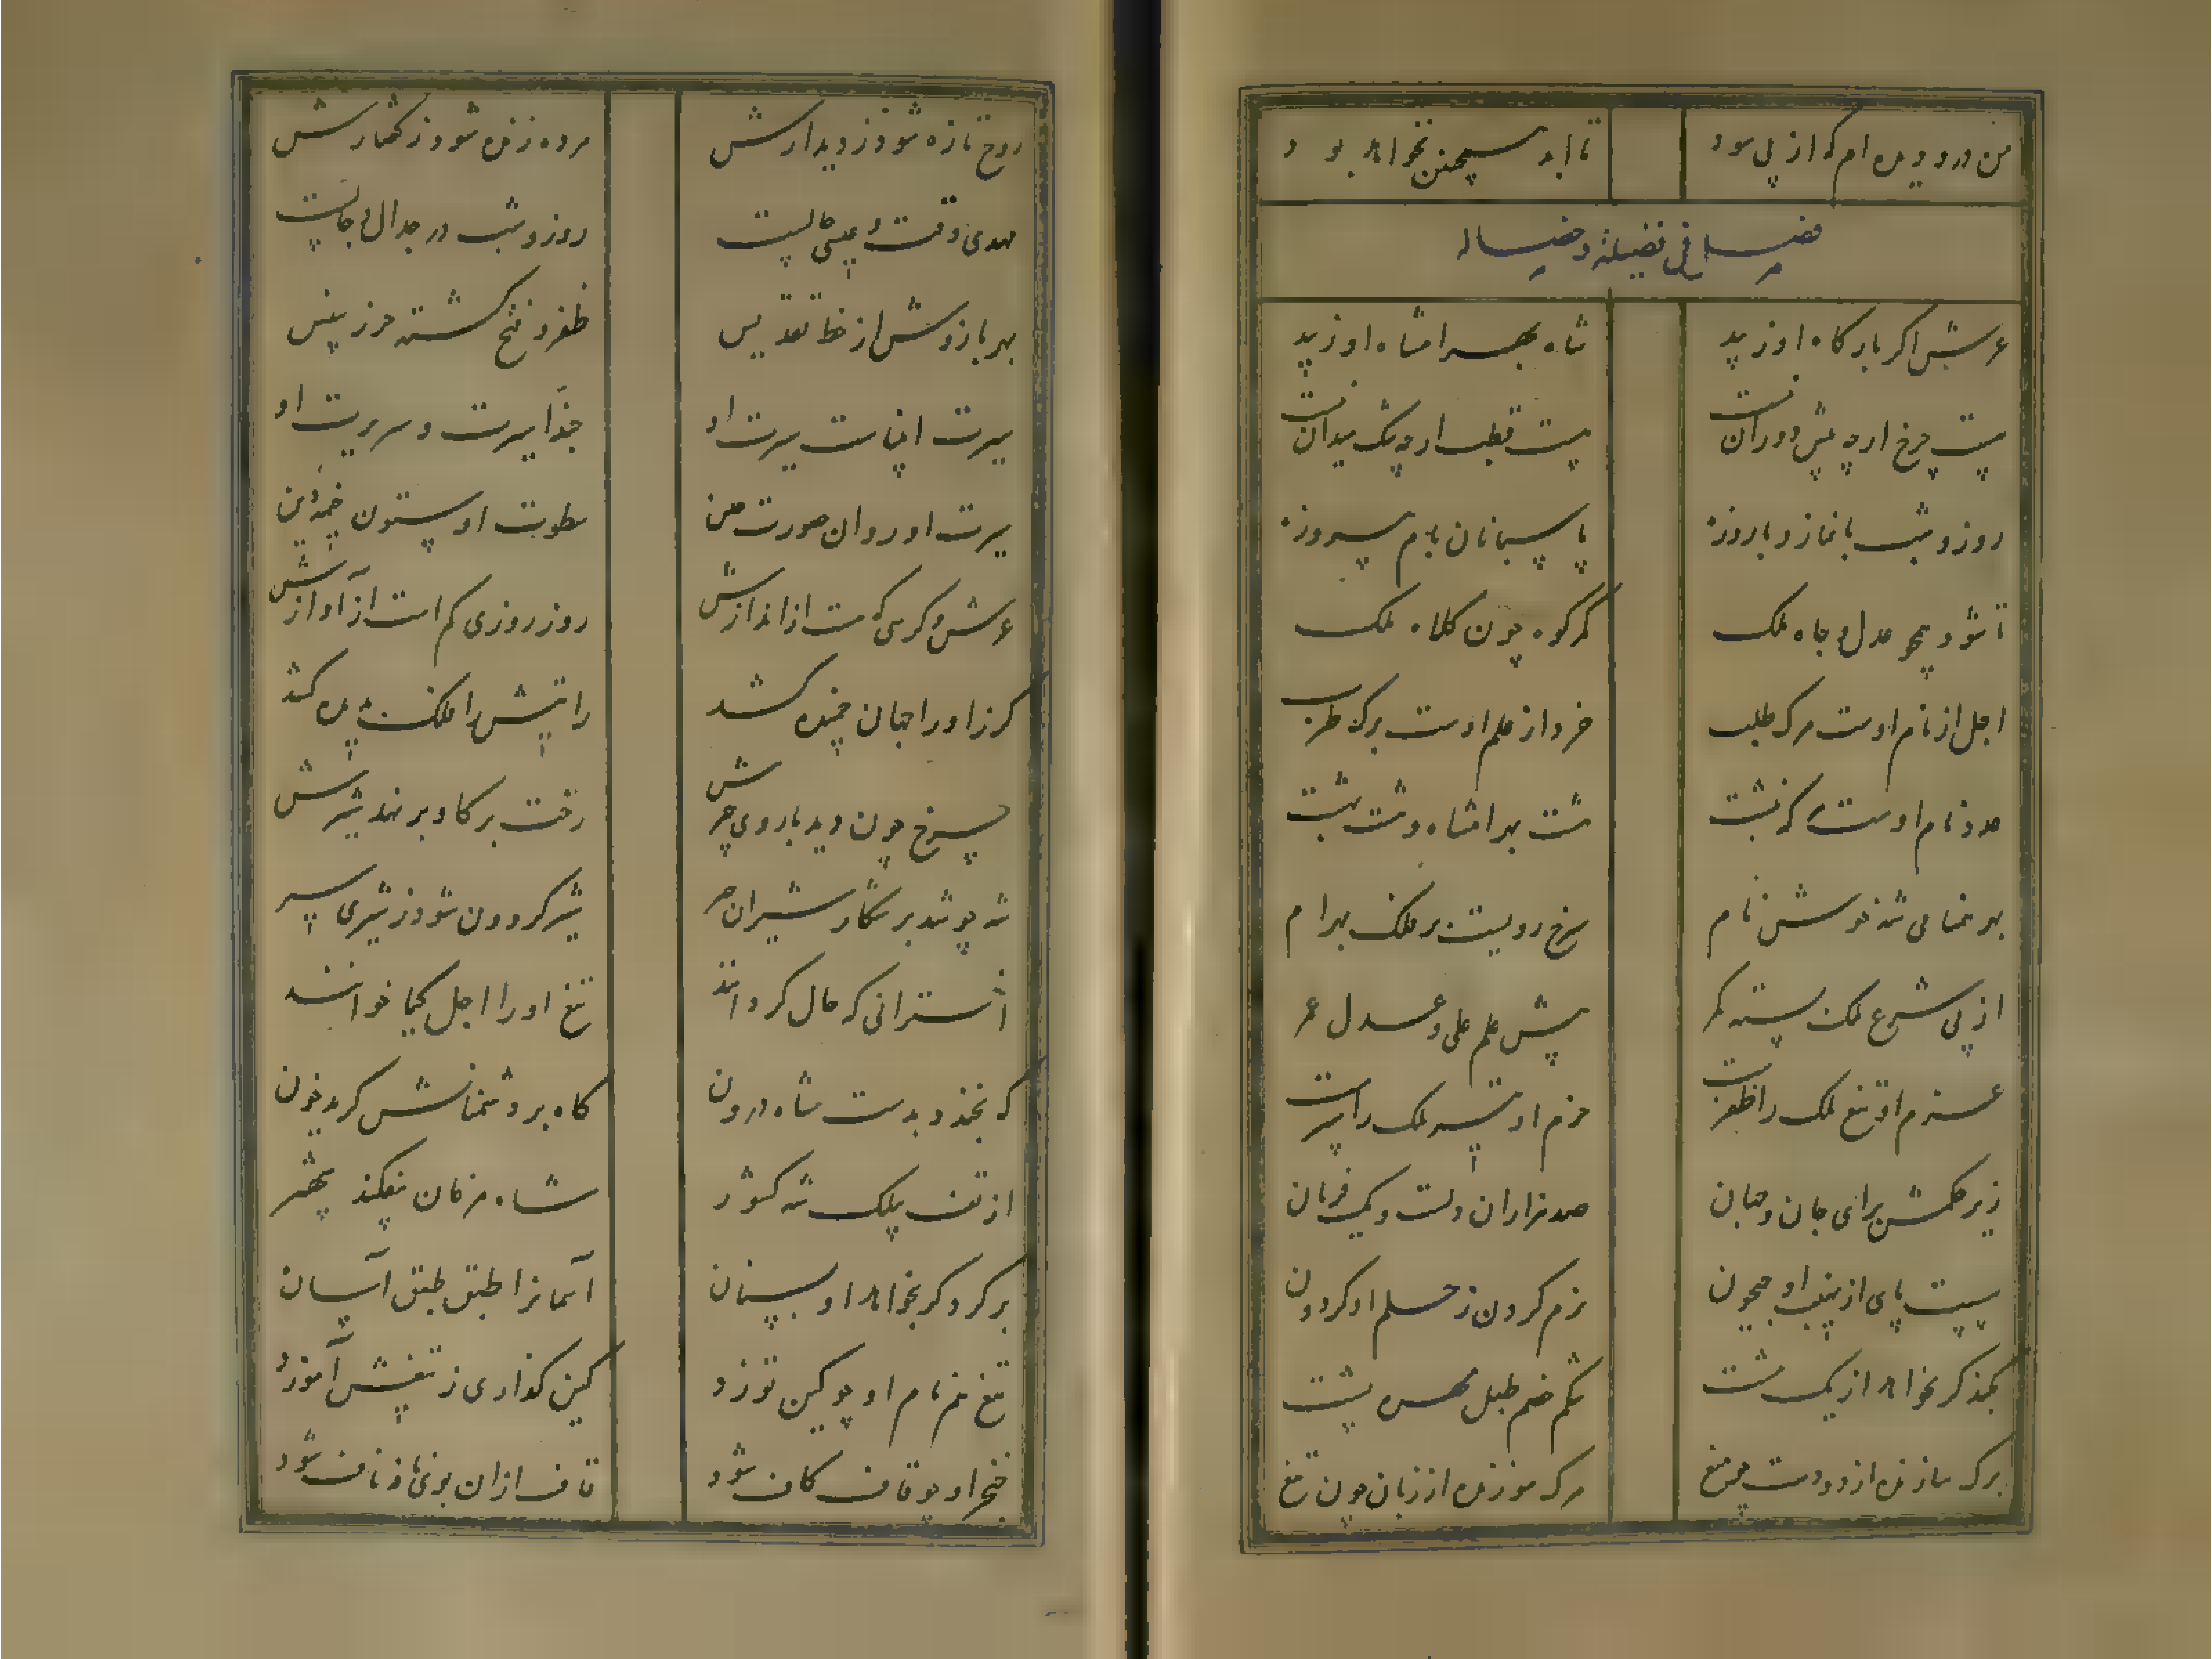 من درود دیده ام که از پی سود
تا ابد همچنین نخواهد بود
فصل فی فضیلة و خصاله
عرش اگر بارگاه او زیبد
شاه بهرامشاه او زیبد
نیست چرخ ارچه پیش دورانست
نیست قطب ارچه یک میدانست
روز و شب با نماز و با روزه
پاسبانان بام پیروزه
تا شود همچو عدل و جاه ملک
کمر کوه چون کلاه ملک
اجل از نام اوست مرک طلب
خرد از علم اوست برک طرب
عدد نام اوست که نبشت
هشت بهرامشاه و هشت بهشت
بهر همنامی شه خوش نام
سرخ رویست بر فلک بهرام
از پی شرع ملک بسته کمر
پیش علم علی و عدل عمر
عزم او تیغ ملک را ظفرست
حزم او تیر ملک را سپرست
زیر حکمش برای جان و جهان
صد هزاران دلست و یک فرمان
نیست پای از نهیب او جیحون
نرم کردن ز حلم او کردون
بکند کر بخواهد از یک مشت
شکم خصم طبل مهره پشت
برک سازنده از دو دست چو میغ
مرک سوزنده از زبان چون تیغ
روح تازه شود ز دیدارش
مرده زنده شود ز گفتارش
مهدی وقت و عیسی حالست
روز و شب در جدال دجالست
بهر بازوش از خط تقدیس
ظفر و فتح کشته حرز نویس
سیرت انبیاست سیرت او
حبذا سیرت و سریرت او
سیرت او روان صورت من
سطوت او ستون خیمه دین
عرش و کرسی که هست از اندازش
روز روزی کم است از آوازش
کرز او را جهان خمنده کشد
رایتش را فلک به پرده کشد
چرخ چون دید باروی چرش
رخت بر کاو بر نهد شیرش
شه چو شد بر شکار شیران چر
شیر کردون شود ز شیری سیر
اخترانی که حال کرداند
تیغ او را اجل کیا خوانند
که بخندد بدست شاه درون
کاه بر دشمنانش کرید خون
از تف بلک شه کشور
شاه مرغان بیفکند شهپر
بر کرد کر بخواهد او بسنان
آسمانرا طبق طبق آسان
تیغ همنام او چو کین توزد
کین کذاری ز تیغش آموزد
خنجر او چو قاف کاف شود
قاف از ان بر نیام ناف شود